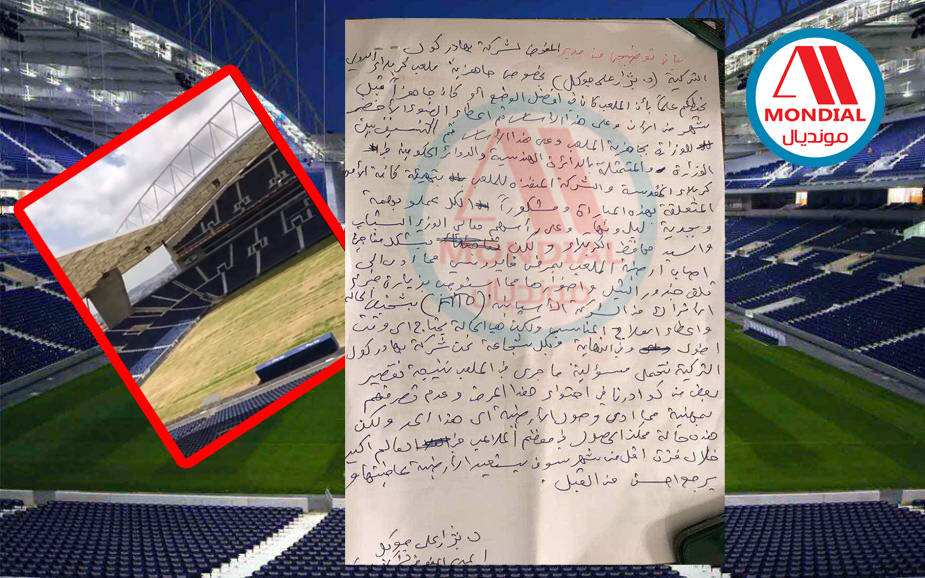 MONDIAL
مونديال
بيان توضيحي من مدير المفوض لشركة بهادر كول
التركية (د. نزار علي جوكل) بخصوص جاهزية ملعب كربلاء الدولي
نحيطكم علماً بأن الملعب كان في افضل الوضع او كان جاهزاً قبل
شهر من الآن وعلى هذا الأساس تم اعطاء الضوء الأخضر
للوزارة بجاهزية الملعب وعلى هذا الأساس تم التنسيق بين
الوزارة والمتمثل بالدائرة الهندسية والدوائر الحكومية في
كربلاء المقدسة والشركة المنفذة للملعب بتهيئة كافة الأمور
المتعلقة بهذه المباراة مشكورة الكل عملو بهمة
وبجدية ليل ونهار وعلى رأسهم معالي الوزير الشباب
والسيد محافظ كربلاء ولكن بشكل مفاجئ
اصاب ارضية الملعب بمرض فايروسية مما أدى الى
تلف جذور الثيل واصفرارها مما يستوجب زيارة خبراء
من الشركة الأسبانية بتشخيص الحالة
واعطاء العلاج المناسب ولكن هذه الحالة يحتاج الى وقت
اطول وفي النهاية وبكل شجاعة نحن شركة بهادر كول
التركية نتحمل مسؤولية ما جرى في الملعب نتيجة تقصير
بعض من كوادرنا في احتواء هذا المرض وعدم تصرفهم
بمهنية مما ادى وصول الأرضية الى هذا الحد ولكن
هذه حالة ممكن الحصول في معظم الملاعب في العالم اكيد
خلال فترة اقل من شهر سوف يستعيد الأرضية عافيتها و
يرجع احسن من القبل.
د. نزار علي جوكل
المدير المفوض
MONDIAL
مونديال